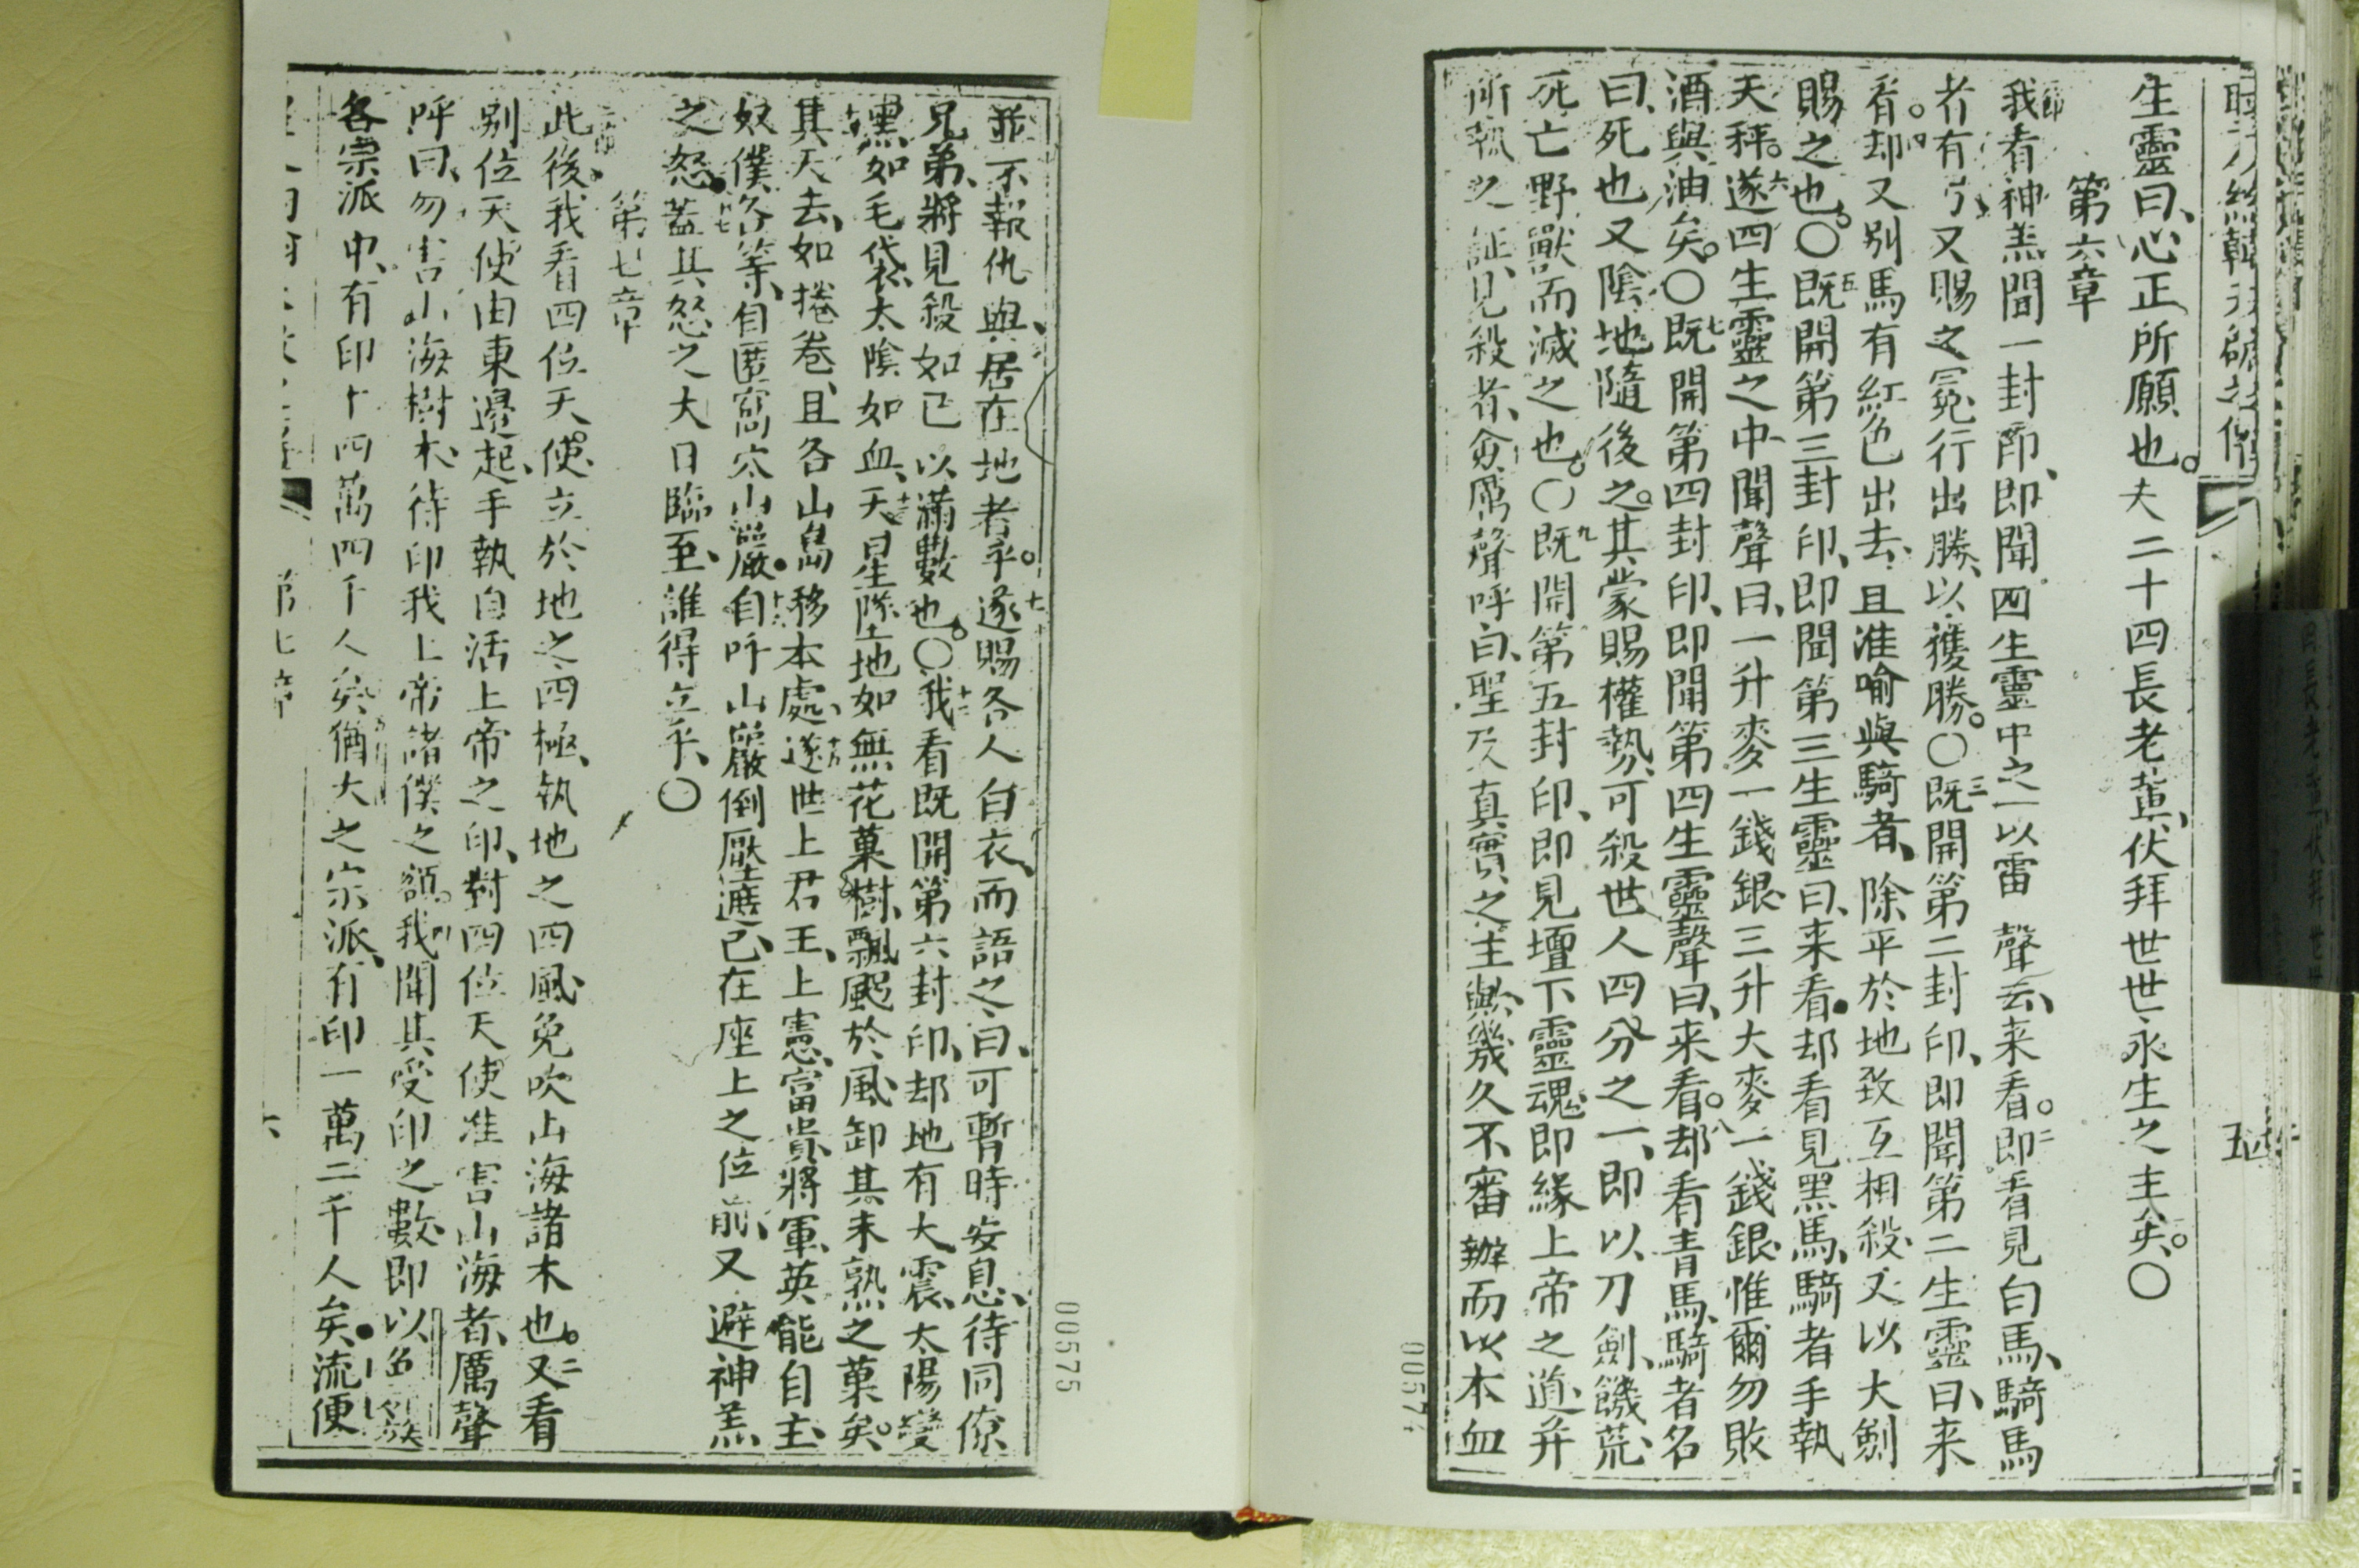 生靈曰、心正所願也。夫二十四長老輩、伏拜世世永生之主矣。〇
第六章
我看神羔開一封印、即聞四生靈中之一以雷聲云、来看。二即看見白馬、騎馬
者有弓、又賜之冕、行出勝、以獲勝。〇三既開第二封印、即聞第二生靈曰、来
看。四却又别馬有紅色出去、且准喻與騎者、除平於地致互相殺、又以大劍
賜之也。〇五既開第三封印、即聞第三生靈曰、来看。却看見黑馬、騎者手執
天秤。六遂四生靈之中聞聲曰、一升麥一錢銀、三升大麥一錢銀、惟爾勿敗
酒與油矣。〇七既開第四封印、即聞第四生靈聲曰、来看。八却看青馬、騎者名
曰、死也、又陰地隨後之。其蒙賜權勢、可殺世人四分之一、即以刀劍、饑荒、
死亡野獸而滅之也。〇九既開第五封印、即見壇下靈魂、即緣上帝之道、并
所執之証、見殺者、僉厲聲呼曰、聖及真實之主歟、幾久不審辦而以本血
00574
並不報仇與居在地者乎。十遂賜各人白衣、而語之曰、可暫時安息、待同僚
兄弟、將見殺如已以滿數也。〇我看既開第六封印、却地有大震、太陽變
黑如毛袋、太陰如血、天星墜地如無花菓樹、飄颺於風、卸其未熟之菓矣。
其天去、如捲卷、且各山島移本處、遂世上君王、上憲、富貴、將軍、英能自主、
奴僕各等、自匿窩穴山巖。自呼山巖倒壓遮己在座上之位前、又避神羔
之怒。蓋其怒之大日臨至、誰得立乎、〇
第七章
此後我看四位天使立於地之四極、執地之四風、免吹山海諸木也。二又看
别位天使由東邊起、手執自活上帝之印、對四位天使准害山海者、厲聲
呼曰、勿害山海樹木、待印我上帝諸僕之額。我聞其受印之數、即以色列族
各宗派中、有印十四萬四千人矣。猶大之宗派、有印一萬二千人矣。流便
第七章
六
00575